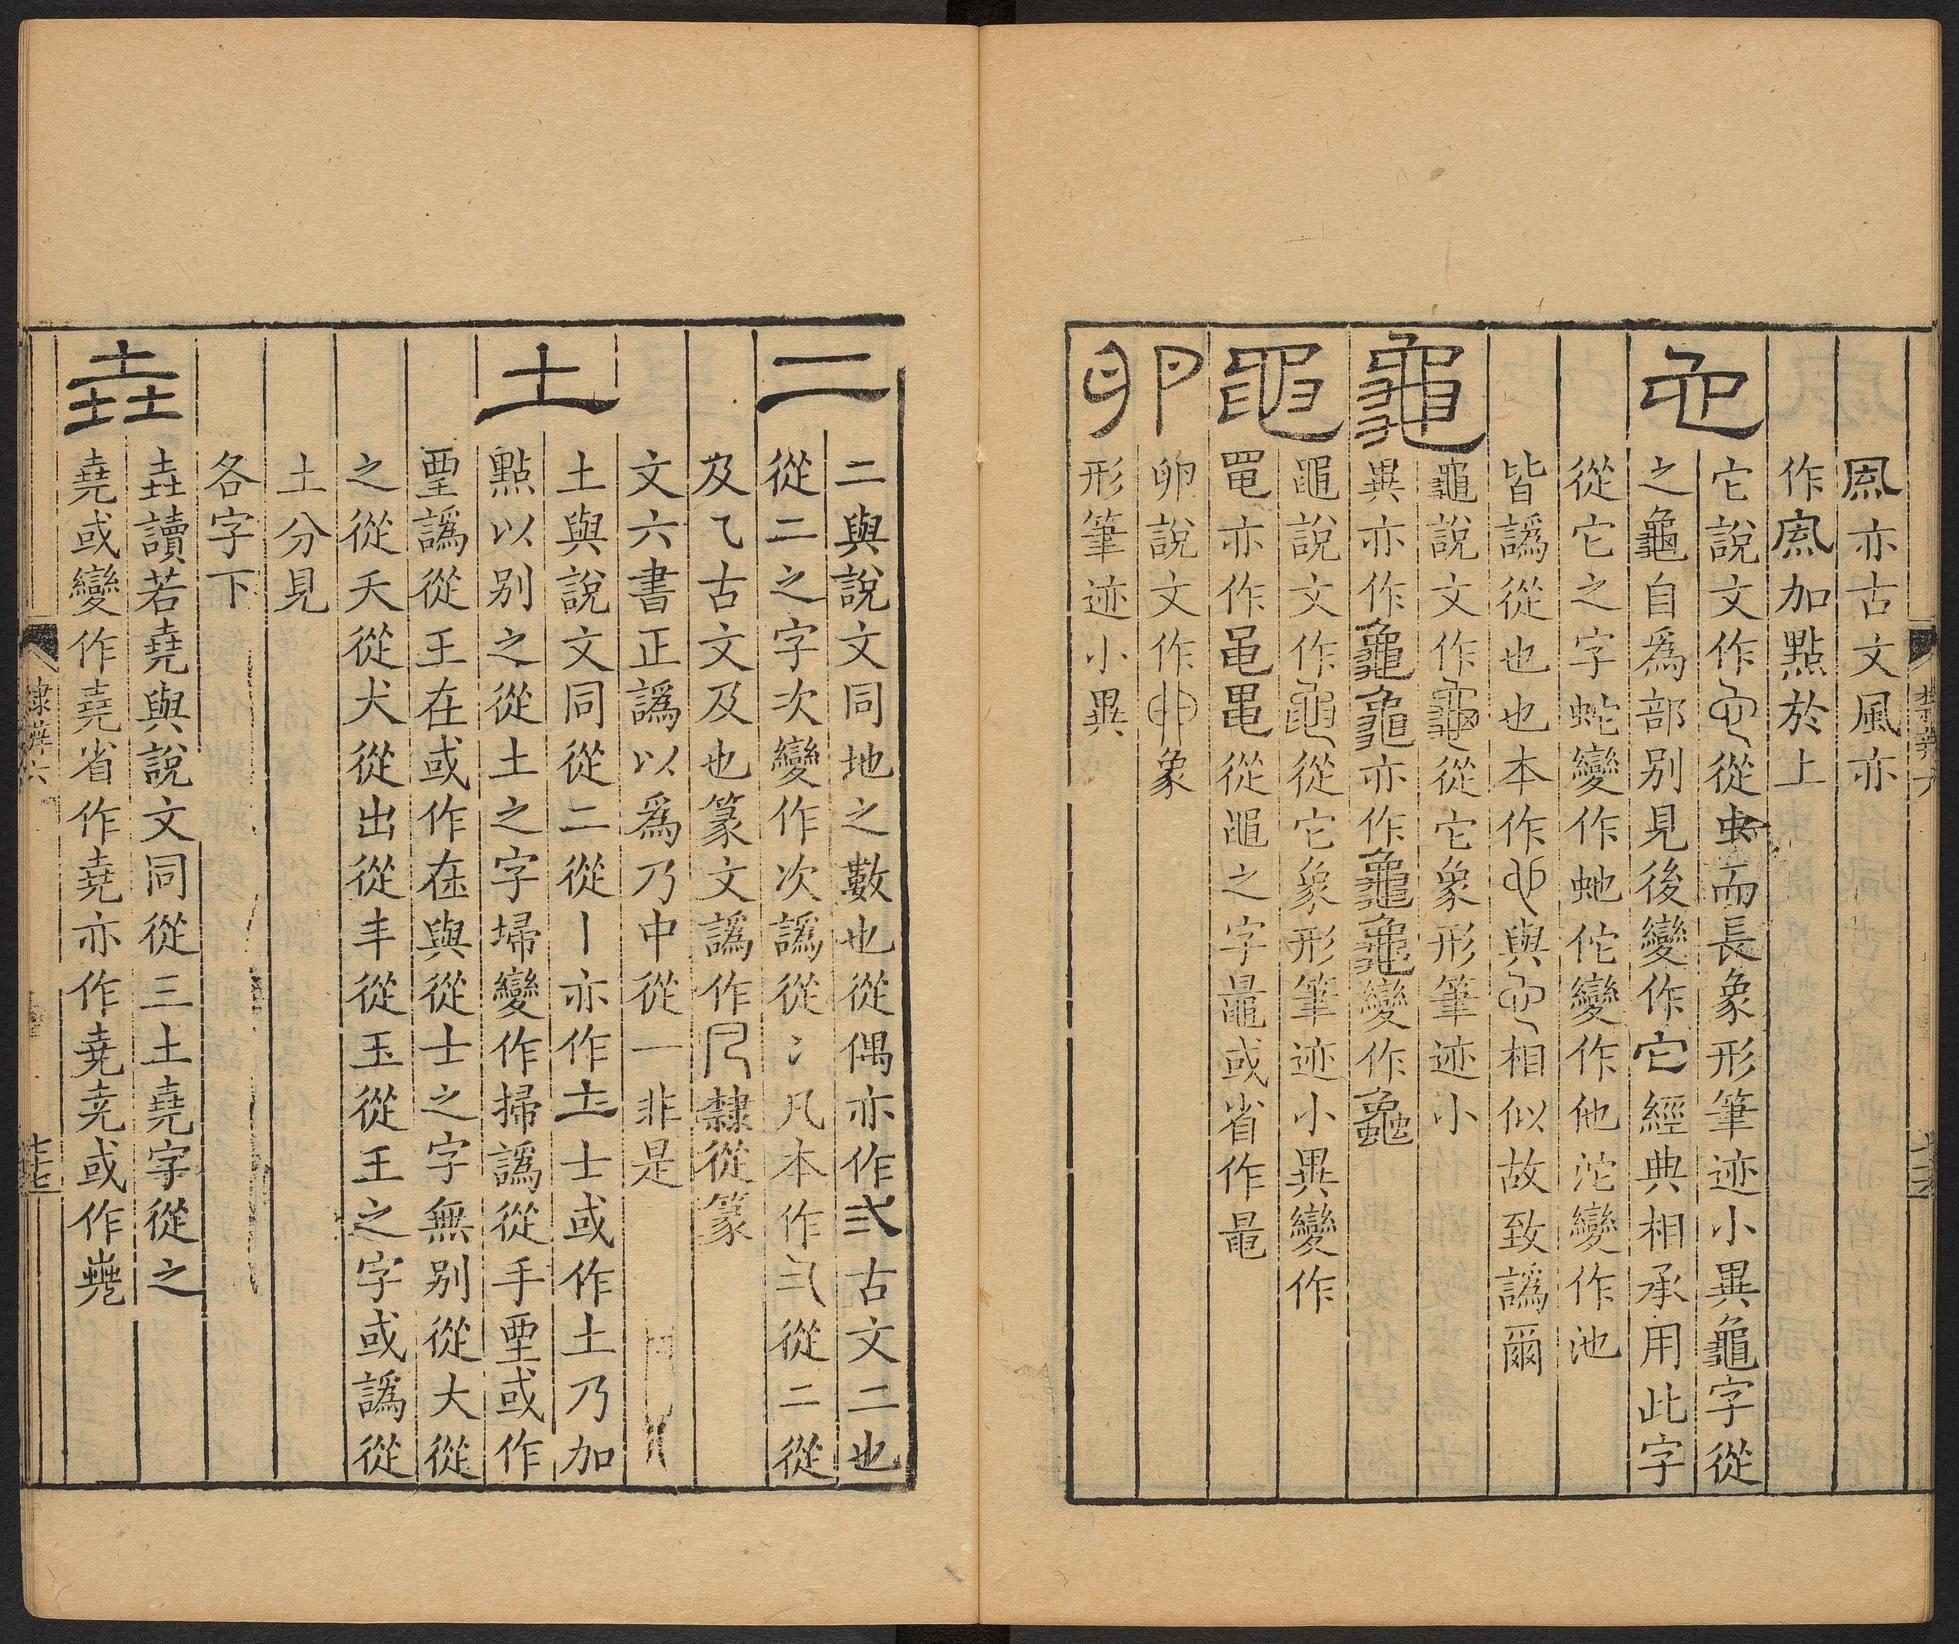 凮亦古文風亦
作凬加點於上
它
它說文作從虫而長象形筆迹小異龜字從
之龜自爲部別見後變作它經典相承用此字
從它之字蛇變作虵佗變作他沱變作池
皆譌從也也本作與相似故致譌爾
龜
龜說文作從它象形筆迹小
異亦作亦作變作
黽
黽說文作從它象形筆迹小異變作
亦作從黽之字鼂或省作
卵
卵說文作象
形筆迹小異
二
二與說文同地之數也從偶亦作弍古文二也
從二之字次變作次譌從冫凡本作從二從
及乁古文及也篆文譌作隸從篆
文六書正譌以爲乃中從一非是
土
土與說文同從二從丨亦作士或作土乃加
點以別之從土之字埽變作掃譌從手垔或作
垔譌從王在或作在與從士之字無別從大從
之從夭從犬從出從丰從玉從王之字或譌從
土分見
各字下
垚
垚讀若堯與說文同從三土堯字從之
堯或變作堯省作堯亦作或作
隸辨六